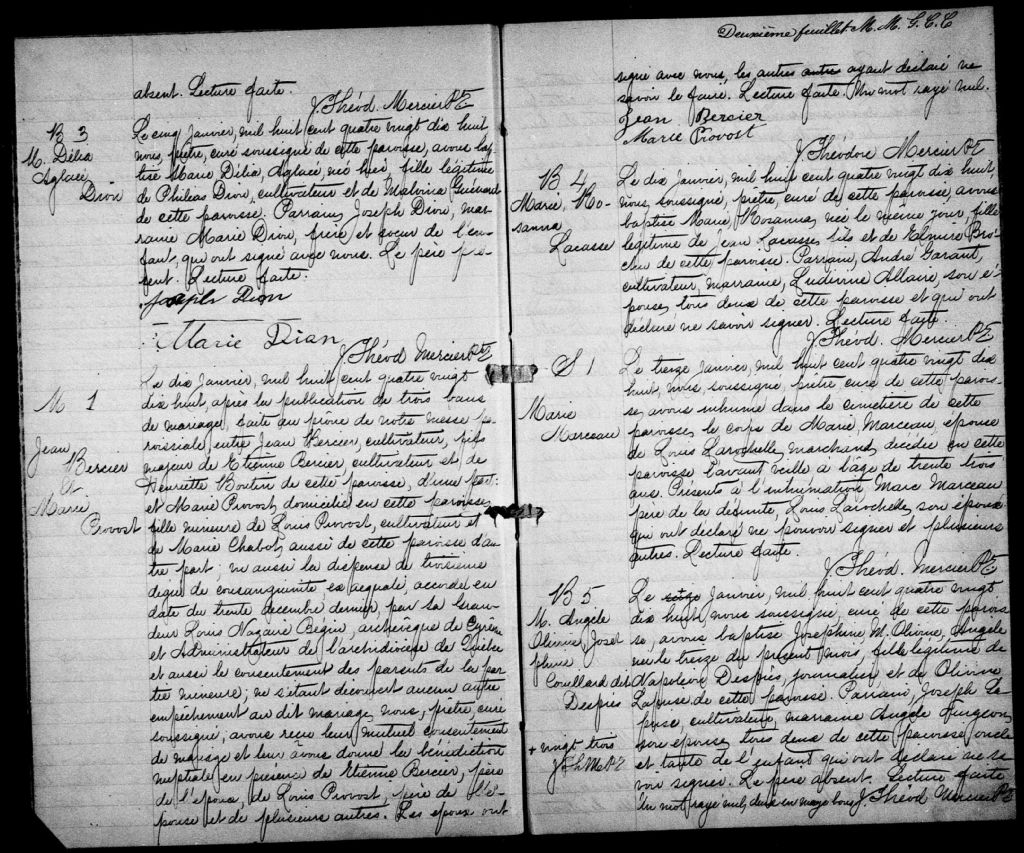 absent. Lecture faite.
J Théod. Mercier Ptre
B 3
M. Délia
Aglaée
Dion
Le cinq Janvier, mil huit cent quatre vingt dix huit
nous, prêtre, curé soussigné de cette paroisse, avons bap-
tisé Marie Délia, Aglaée, née hier, fille légitime
de Philéas Dion, cultivateur et de Malvina Guénard
de cette paroisse. Parrain, Joseph Dion, mar-
raine Marie Dion, frère et soeur de l'en-
fant, qui ont signé avec nous. Le père pré-
sent. Lecture faite.
Joseph Dion
Marie Dion
J Théod Mercier Ptre
M 1
Jean
Bercier
&
Marie
Provost
Le dix Janvier, mil huit cent quatre vingt
dix huit, après la publication de trois bans
de mariage, faite au prône de notre messe pa-
roissiale, entre Jean Bercier, cultivateur, fils
majeur de Etienne Bercier, cultivateur et de
Henriette Boutin de cette paroisse, d'une part:
et Marie Provost, domiciliée en cette paroisse,
fille mineure de Louis Provost, cultivateur et
de Marie Chabot, aussi de cette paroisse d'au-
tre part, vu aussi la dispense de troisième
degré de consanguinité ex aequali, accordée en
date du trente décembre dernier, par Sa Gran-
deur Louis Nazaire Bégin, archevêque de Cyrène
et Administrateur de l'archidiocèse de Québec
et aussi le consentement des parents de la par-
tie mineure; ne s'étant découvert aucun autre
empêchement au dit mariage, nous, prêtre, curé
soussigné, avons reçu leur mutuel consentement
de mariage et leur avons donné la bénédiction
nuptiale en présence de Etienne Bercier, père
de l'époux, de Louis Provost, père de l'é-
pouse et de plusieurs autres. Les époux ont
Deuxième feuillet M. M. G. C. C
signé avec nous, les autres autres ayant déclaré ne
savoir le faire. Lecture faite. Un mot rayé nul.
Jean Bercier
Marie Provost
J Théodore Mercier Ptre
B 4
Marie, Ro-
sanna
Lacasse
Le dix Janvier, mil huit cent quatre vingt dix huit,
nous, soussigné, prêtre, curé de cette paroisse, avons
baptisé Marie, Rosanna, née le même jour, fille
légitime de Jean Lacasse, fils et de Elmire Bro-
chu de cette paroisse. Parrain, André Garant,
cultivateur, marraine, Ludivine Allaire, son é-
pouse, tous deux de cette paroisse et qui ont
déclaré ne savoir signer. Lecture faite.
J Théod. Mercier Ptre
S 1
Marie
Marceau
Le treize Janvier, mil huit cent quatre vingt dix
huit, nous, soussigné, prêtre curé de cette parois-
se, avons inhumé dans le cimetière de cette
paroisse, le corps de Marie, Marceau, épouse
de Louis Larochelle, marchand, décédée en cette
paroisse l'avant veille à l'âge de trente trois
ans. Présents à l'inhumation, Marc Marceau
père de la défunte, Louis Larochelle, son époux
qui ont déclaré ne pouvoir signer et plusieurs
autres. Lecture faite.
J Théod. Mercier Ptre
B 5
M. Angèle
Olivine, José-
phine
Couillard dit
Després
+ vingt trois
J Th M Ptre
Le Janvier, mil huit cent quatre vingt
dix huit, nous soussigné, curé de cette parois-
se, avons baptisé Joséphine, M. Olivine, Angèle
née le treize du présent mois, fille légitime de
Napoléon Després, journalier, et de Olivine
de cette paroisse. Parrain, Joseph
cultivateur, marraine Angèle Turgeon,
son épouse, tous deux de cette paroisse oncle
et tante de l'enfant qui ont déclaré ne sa-
voir signer. Le père absent. Lecture faite
Un mot rayé nul, deux en marge bons J. Théod Mercier Ptre